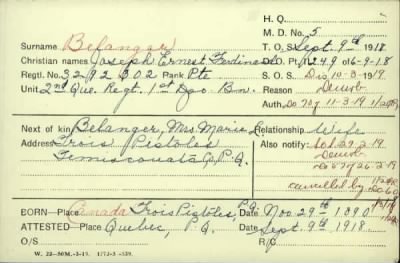 H. Q.
M. D. No. 5
Surname Belanger
T. O. S. Sept. 9th 1918
Christian names Joseph Ernest Ferdinand
D.O. Pt. II 249 of 6-9-18
Regtl. No. 3292302 Rank Pte
S. O. S. Dis 10-3-19
Unit 2nd Que. Regt. 1st Dpo. Bn.
Reason Demob.
Auth. Do 70 11-3-19
Next of kin Belanger, Mrs. Maria L. Relationship Wife
Address Trois Pistoles
Also notify: 27-2-19
Temiscouata Co. P.Q.
Demob
26-2-19
cancelled by
BORN—Place Canada Trois Pistoles, P.Q. Date Nov. 29th 1890
ATTESTED Place Quebec, P.Q. Date Sept. 9th 1918
O/S R/C
W. 22—50M.-3-19. 1772-3-539.